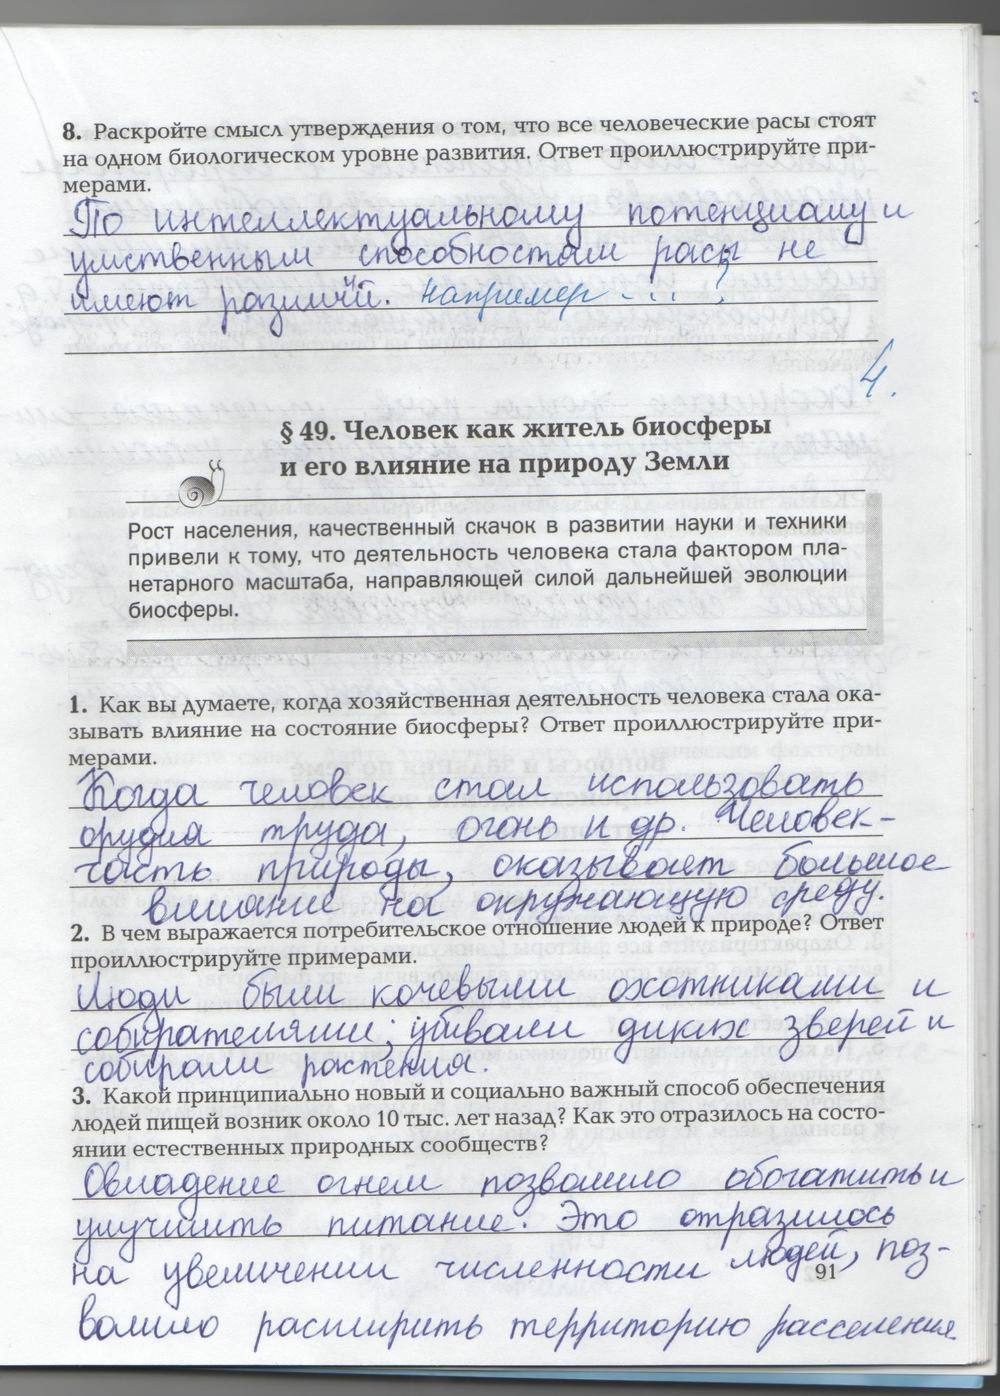 8. Раскройте смысл утверждения о том, что все человеческие расы стоят
на одном биологическом уровне развития. Ответ проиллюстрируйте при-
мерами.
По интеллектуальному потенциалу и
умственным способностям расы не
имеют различий. Например - ...?
4.
§ 49. Человек как житель биосферы
и его влияние на природу Земли
Рост населения, качественный скачок в развитии науки и техники
привели к тому, что деятельность человека стала фактором пла-
нетарного масштаба, направляющей силой дальнейшей эволюции
биосферы.
1. Как вы думаете, когда хозяйственная деятельность человека стала ока-
зывать влияние на состояние биосферы? Ответ проиллюстрируйте при-
мерами.
Когда человек стал использовать
орудия труда, огонь и др. Человек-
часть природы, оказывает большое
влияние на окружающую среду.
2. В чем выражается потребительское отношение людей к природе? Ответ
проиллюстрируйте примерами.
Люди были кочевыми охотниками и
собирателями; убивали диких зверей и
собирали растения.
3. Какой принципиально новый и социально важный способ обеспечения
людей пищей возник около 10 тыс. лет назад? Как это отразилось на состо-
янии естественных природных сообществ?
Овладение огнем позволило обогатить и
улучшить питание. Это отразилось
на увеличении численности людей, поз-
91
волило расширить территорию расселения